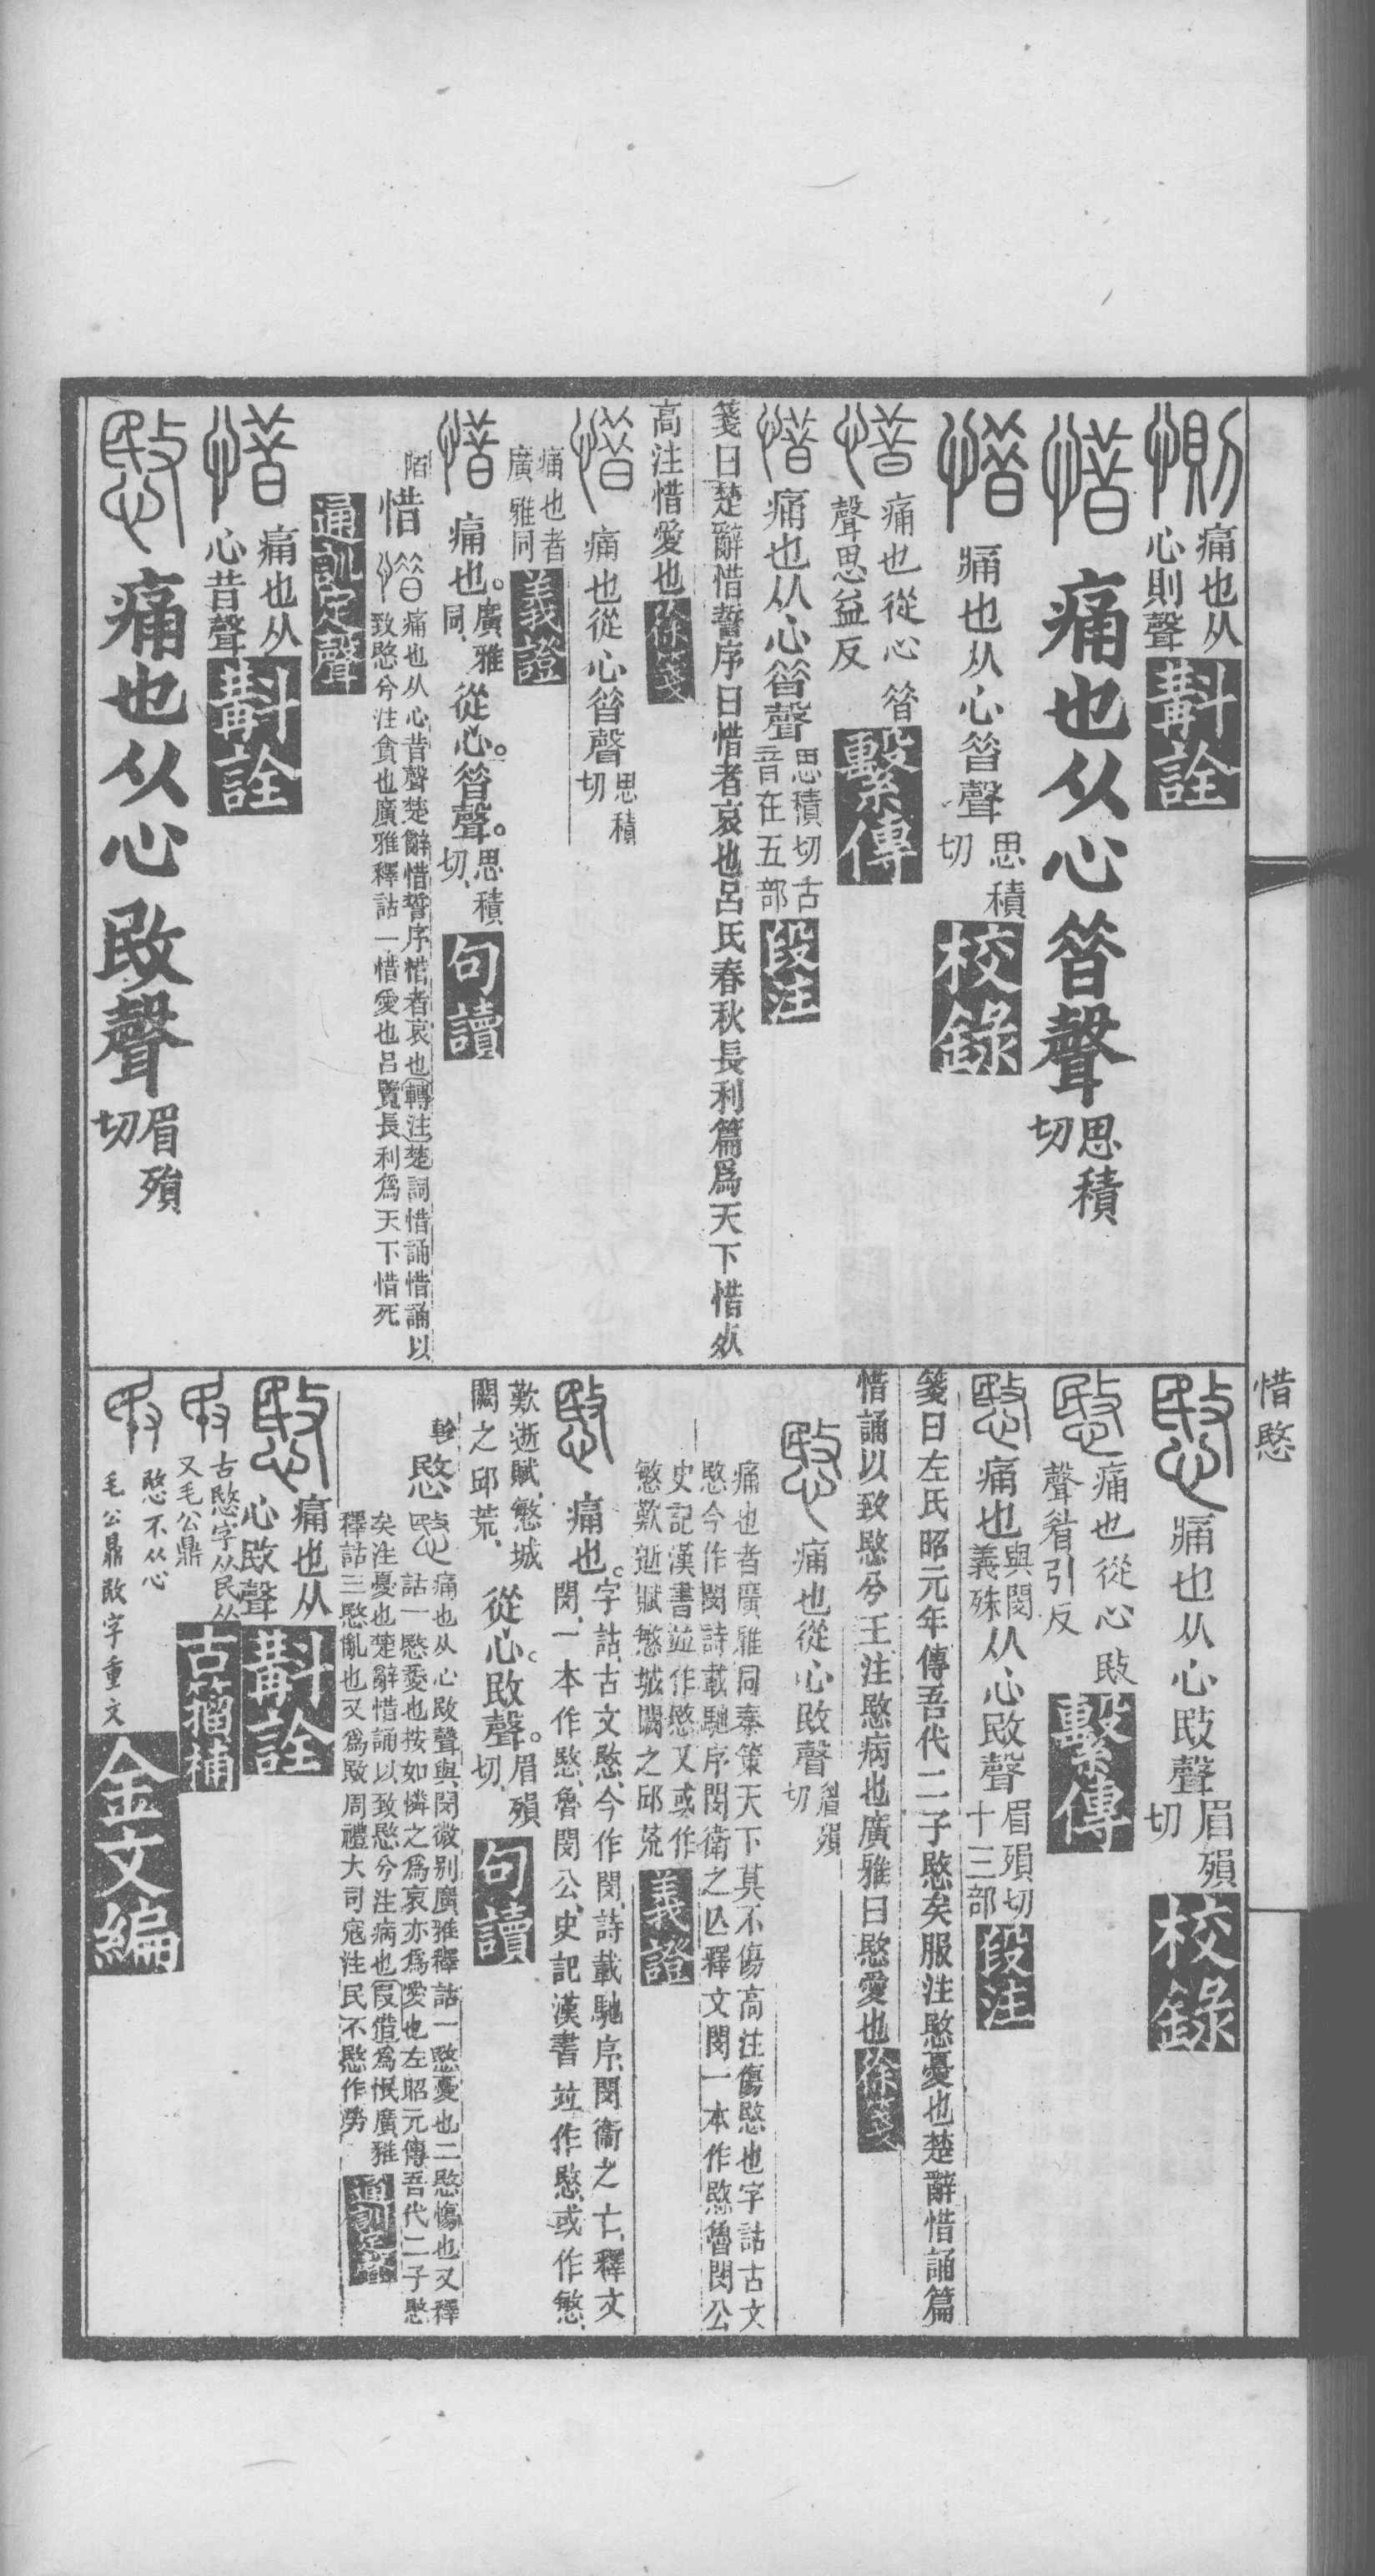 惻 痛也从心則聲 斠詮
惜 痛也从心㫺聲 思積切
惜 痛也从心㫺聲 思積切 校錄
惜 痛也從心㫺聲思益反 繫傳
惜 痛也从心㫺聲 思積切古音在五部 段注
箋曰楚辭惜誓序曰惜者哀也呂氏春秋長利篇爲天下惜死
高注惜愛也 徐箋
惜 痛也從心㫺聲 思積切
痛也者廣雅同 義證
惜 痛也。廣雅同、從心。㫺聲。思積切、 句讀
陌 惜 㫺 痛也从心昔聲楚辭惜誓序惜者哀也 轉注 楚詞惜誦惜誦以
致愍兮注貪也廣雅釋詁一惜愛也呂覽長利爲天下惜死
通訓定聲
惜 痛也从心昔聲 斠詮
愍 痛也从心敃聲 眉殞切
愍 痛也从心敃聲 眉殞切 校錄
愍 痛也從心敃聲眥引反 繫傳
愍 痛也 與閔義殊 从心敃聲 眉殞切十三部 段注
箋曰左氏昭元年傳吾代二子愍矣服注愍憂也楚辭惜誦篇
惜誦以致愍兮王注愍病也廣雅曰愍愛也 徐箋
愍 痛也從心敃聲 眉殞切
痛也者廣雅同秦策天下莫不傷高注傷愍也字詁古文
愍今作閔詩載馳序閔衛之亡釋文閔一本作愍魯閔公
史記漢書竝作愍又或作
慜歎逝賦慜城闕之邱荒 義證
愍 痛也。字詁、古文愍、今作閔、詩載馳序、閔衞之亡、釋文
閔、一本作愍、魯閔公、史記漢書竝作愍、或作慜、
歎逝賦、慜城
闕之邱荒、 從心。敃聲。眉殞切、 句讀
軫 愍 痛也从心敃聲與閔微别廣雅釋詁一愍憂也二愍傷也又釋
詁一愍愛也按如憐之爲哀亦爲愛也左昭元傳吾代二子愍
矣注憂也楚辭惜誦以致愍兮注病也 叚借 爲惽廣雅
釋詁三愍亂也又爲敃周禮大司寇注民不愍作勞 通訓定聲
愍 痛也从心敃聲 斠詮
古愍字从民从又毛公鼎 古籀補
愍不从心
毛公鼎敃字重文 金文編
惜愍